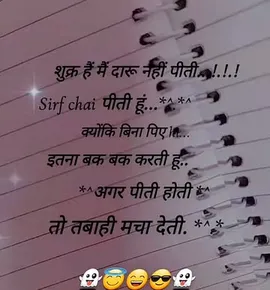 शुक्र हैं मैं दारू नहीं पीती..!.!.!
Sirf chai पीती हूं...*^.*^
क्योंकि बिना पिए
इतना बक बक करती हूं..
*^अगर पीती होती *^
तो तबाही मचा देती. *^.*